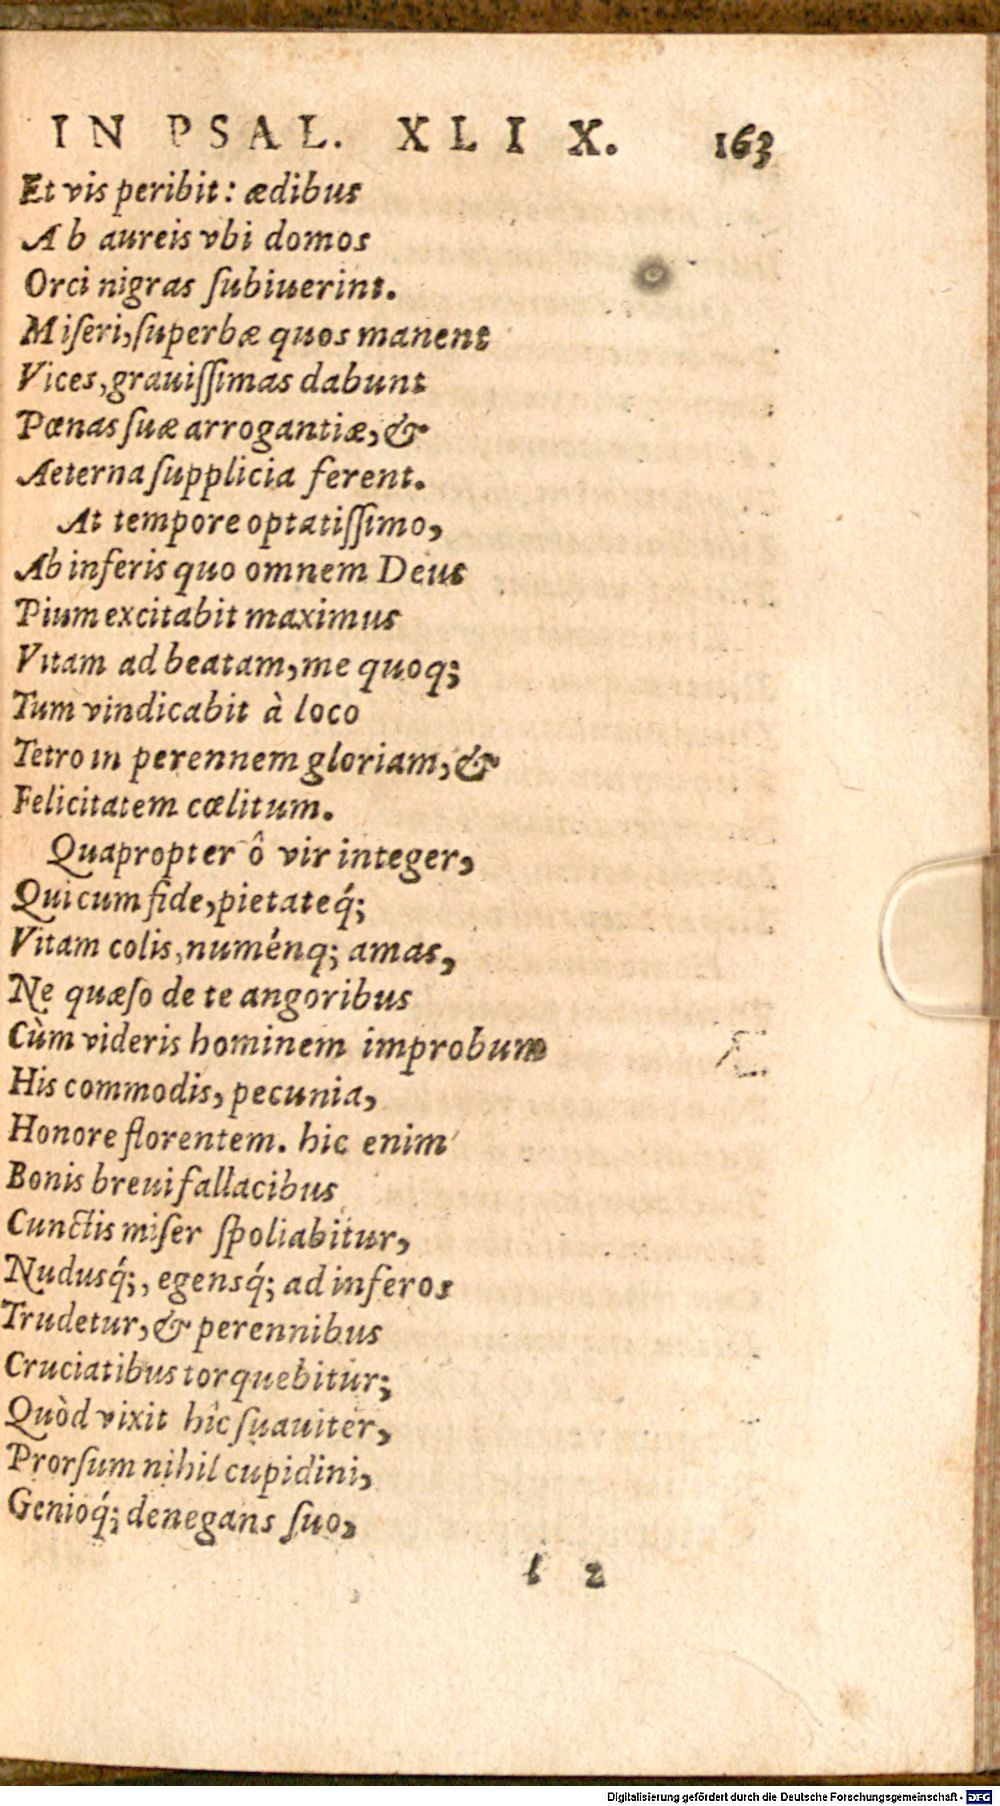 IN PSAL. XLIX. 163
Et vis peribit: ædibus
Ab aureis vbi domos
Orci nigras ſubiuerint.
Miſeri, ſuperbæ quos manent
Vices, grauiſſimas dabunt
Pœnas ſuæ arrogantiæ, &
Aeterna ſupplicia ferent.
At tempore optatiſſimo,
Ab inferis quo omnem Deus
Pium excitabit maximus
Vitam ad beatam, me quoq;
Tum vindicabit à loco
Tetro in perennem gloriam, &
Felicitatem cœlitum.
Quapropter ô vir integer,
Qui cum fide, pietateq́;
Vitam colis, numénq; amas,
Ne quæſo de te angoribus
Cùm videris hominem improbum
His commodis, pecunia,
Honore florentem. hic enim
Bonis breui fallacibus
Cunctis miſer ſpoliabitur,
Nudusq́;, egensq́; ad inferos
Trudetur, & perennibus
Cruciatibus torquebitur;
Quòd vixit hîc ſuauiter,
Prorſum nihil cupidini,
Genioq́; denegans ſuo,
l 2
Digitalisierung gefördert durch die Deutsche Forschungsgemeinschaft - DFG